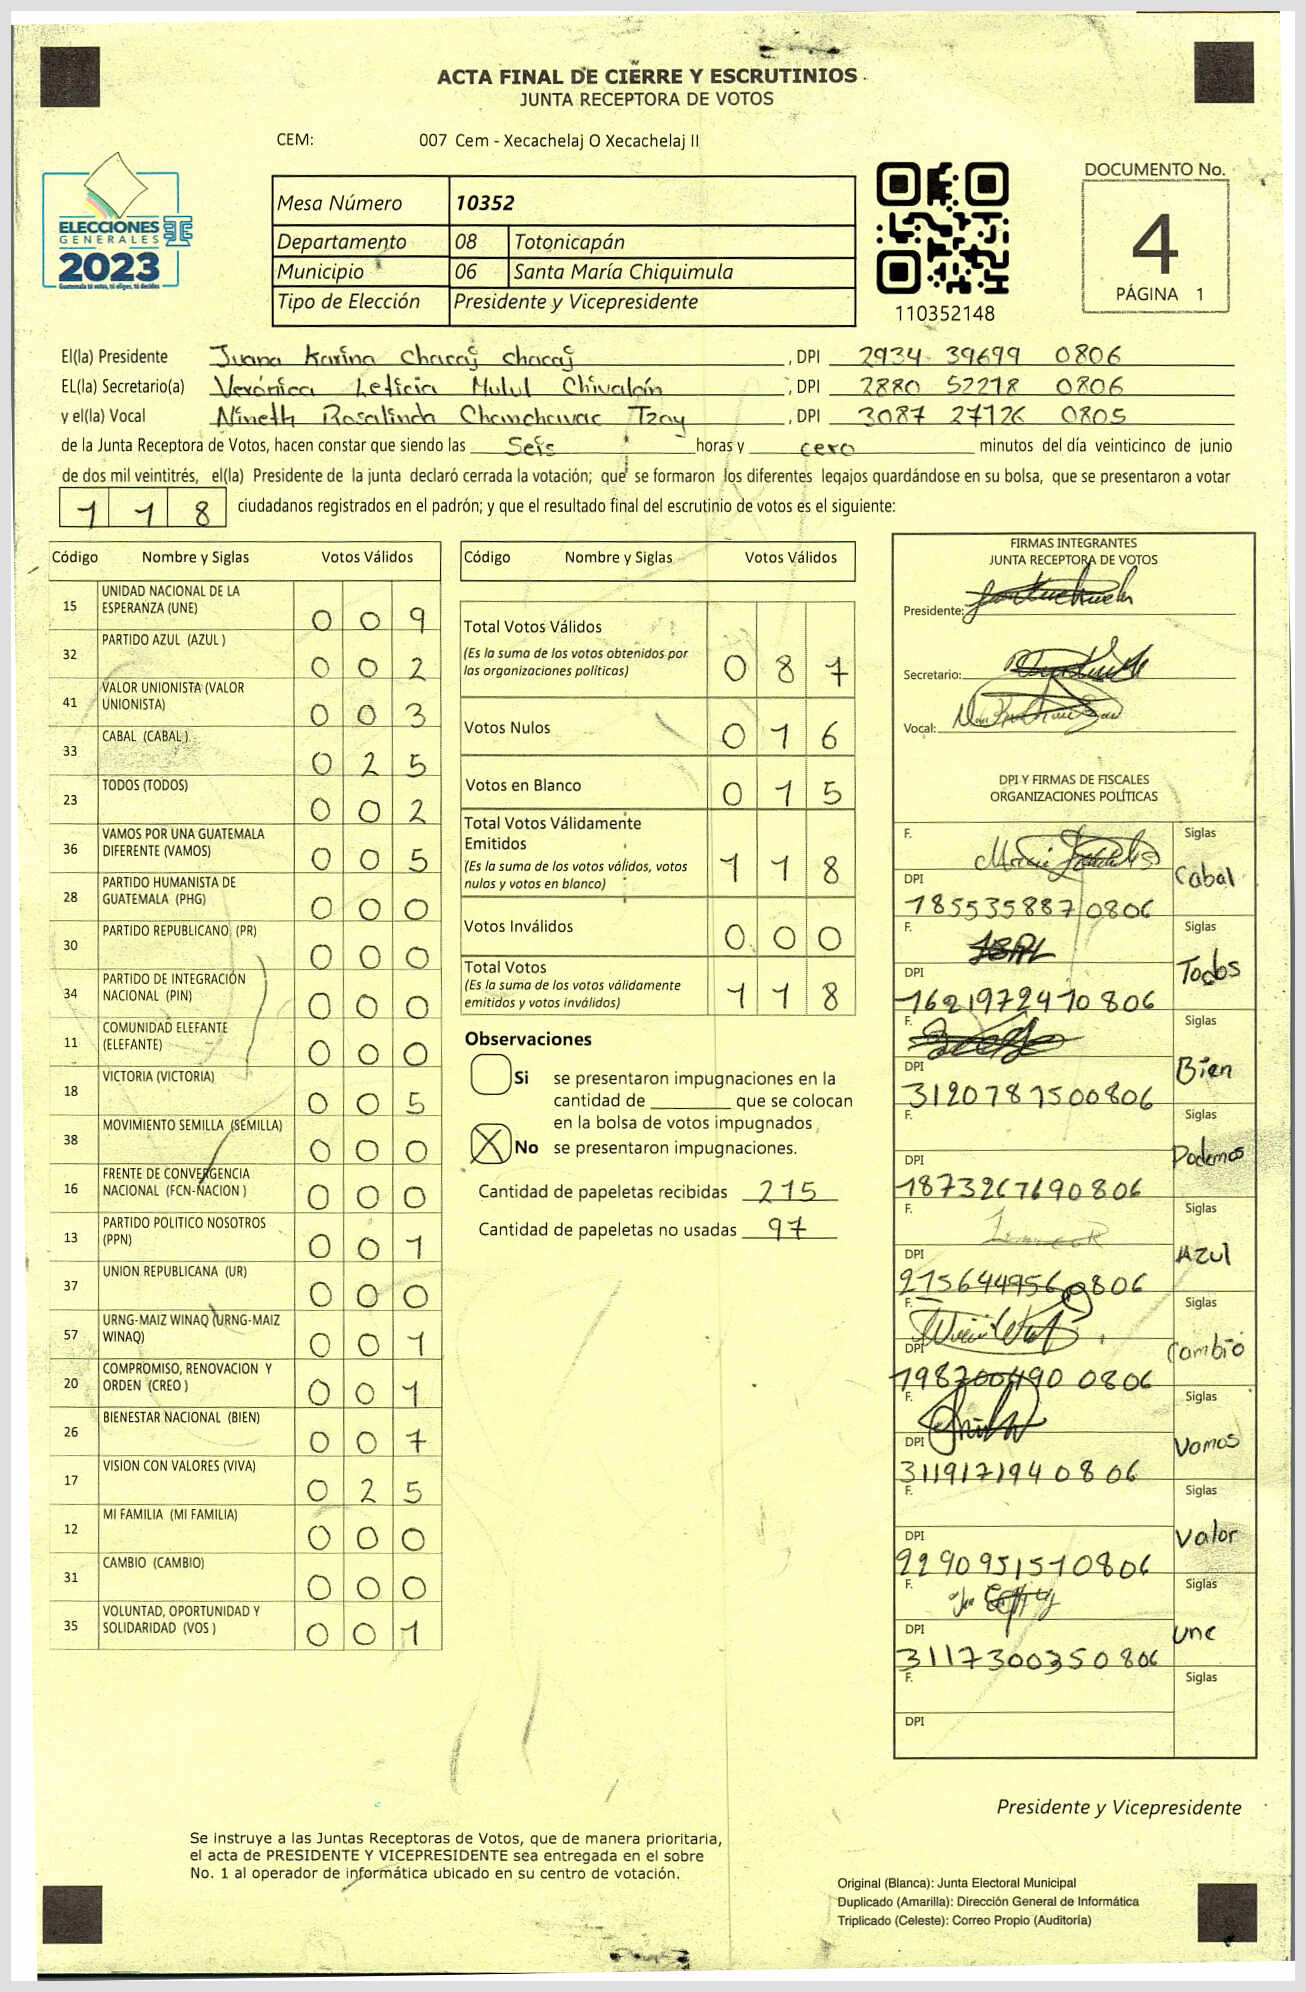 ACTA FINAL DE CIERRE Y ESCRUTINIOS
JUNTA RECEPTORA DE VOTOS
CEM: 007 Cem - Xecachelaj O Xecachelaj II
ELECCIONES
GENERALES
2023
Guatemala tú votas, tú eliges, tú decides
Mesa Número 10352
Departamento 08 Totonicapán
Municipio 06 Santa María Chiquimula
Tipo de Elección Presidente y Vicepresidente
110352148
DOCUMENTO No.
4
PÁGINA 1
El(la) Presidente Juana Karina Chacaj chacaj, DPI 2934 39699 0806
EL(la) Secretario(a) Verónica Leticia Mulul Chivalán, DPI 2880 52218 0806
y el(la) Vocal Nineth Rosalinda Chanchavac Tzoy, DPI 3087 27126 0805
de la Junta Receptora de Votos, hacen constar que siendo las Seis horas y cero minutos del día veinticinco de junio
de dos mil veintitrés, el(la) Presidente de la junta declaró cerrada la votación; que se formaron los diferentes legajos guardándose en su bolsa, que se presentaron a votar
1 1 8 ciudadanos registrados en el padrón; y que el resultado final del escrutinio de votos es el siguiente:
Código Nombre y Siglas Votos Válidos
15 UNIDAD NACIONAL DE LA
ESPERANZA (UNE) 0 0 9
32 PARTIDO AZUL (AZUL ) 0 0 2
41 VALOR UNIONISTA (VALOR
UNIONISTA) 0 0 3
33 CABAL (CABAL ) 0 2 5
23 TODOS (TODOS) 0 0 2
36 VAMOS POR UNA GUATEMALA
DIFERENTE (VAMOS) 0 0 5
28 PARTIDO HUMANISTA DE
GUATEMALA (PHG) 0 0 0
30 PARTIDO REPUBLICANO (PR) 0 0 0
34 PARTIDO DE INTEGRACIÓN
NACIONAL (PIN) 0 0 0
11 COMUNIDAD ELEFANTE
(ELEFANTE) 0 0 0
18 VICTORIA (VICTORIA) 0 0 5
38 MOVIMIENTO SEMILLA (SEMILLA) 0 0 0
16 FRENTE DE CONVERGENCIA
NACIONAL (FCN-NACION ) 0 0 0
13 PARTIDO POLITICO NOSOTROS
(PPN) 0 0 1
37 UNION REPUBLICANA (UR) 0 0 0
57 URNG-MAIZ WINAQ (URNG-MAIZ
WINAQ) 0 0 1
20 COMPROMISO, RENOVACION Y
ORDEN (CREO ) 0 0 1
26 BIENESTAR NACIONAL (BIEN) 0 0 7
17 VISION CON VALORES (VIVA) 0 2 5
12 MI FAMILIA (MI FAMILIA) 0 0 0
31 CAMBIO (CAMBIO) 0 0 0
35 VOLUNTAD, OPORTUNIDAD Y
SOLIDARIDAD (VOS ) 0 0 1
Código Nombre y Siglas Votos Válidos
Total Votos Válidos
(Es la suma de los votos obtenidos por
las organizaciones políticas) 0 8 7
Votos Nulos 0 1 6
Votos en Blanco 0 1 5
Total Votos Válidamente
Emitidos
(Es la suma de los votos válidos, votos
nulos y votos en blanco) 1 1 8
Votos Inválidos 0 0 0
Total Votos
(Es la suma de los votos válidamente
emitidos y votos inválidos) 1 1 8
Observaciones
Si se presentaron impugnaciones en la
cantidad de ________ que se colocan
en la bolsa de votos impugnados
X No se presentaron impugnaciones.
Cantidad de papeletas recibidas 215
Cantidad de papeletas no usadas 97
FIRMAS INTEGRANTES
JUNTA RECEPTORA DE VOTOS
Presidente:
Secretario:
Vocal:
DPI Y FIRMAS DE FISCALES
ORGANIZACIONES POLÍTICAS
F. Siglas
Cabal
DPI
185535887 0806
F. Siglas
Todos
DPI
1621972470806
F. Siglas
Bien
DPI
3120787500806
F. Siglas
Podemos
DPI
1873267690806
F. Siglas
Azul
DPI
2756449560806
F. Siglas
Cambio
DPI
198700490 0806
F. Siglas
Vamos
DPI
311917194 0806
F. Siglas
Valor
DPI
2290951510806
F. Siglas
une
DPI
3117300350806
F. Siglas
DPI
Presidente y Vicepresidente
Se instruye a las Juntas Receptoras de Votos, que de manera prioritaria,
el acta de PRESIDENTE Y VICEPRESIDENTE sea entregada en el sobre
No. 1 al operador de informática ubicado en su centro de votación.
Original (Blanca): Junta Electoral Municipal
Duplicado (Amarilla): Dirección General de Informática
Triplicado (Celeste): Correo Propio (Auditoría)